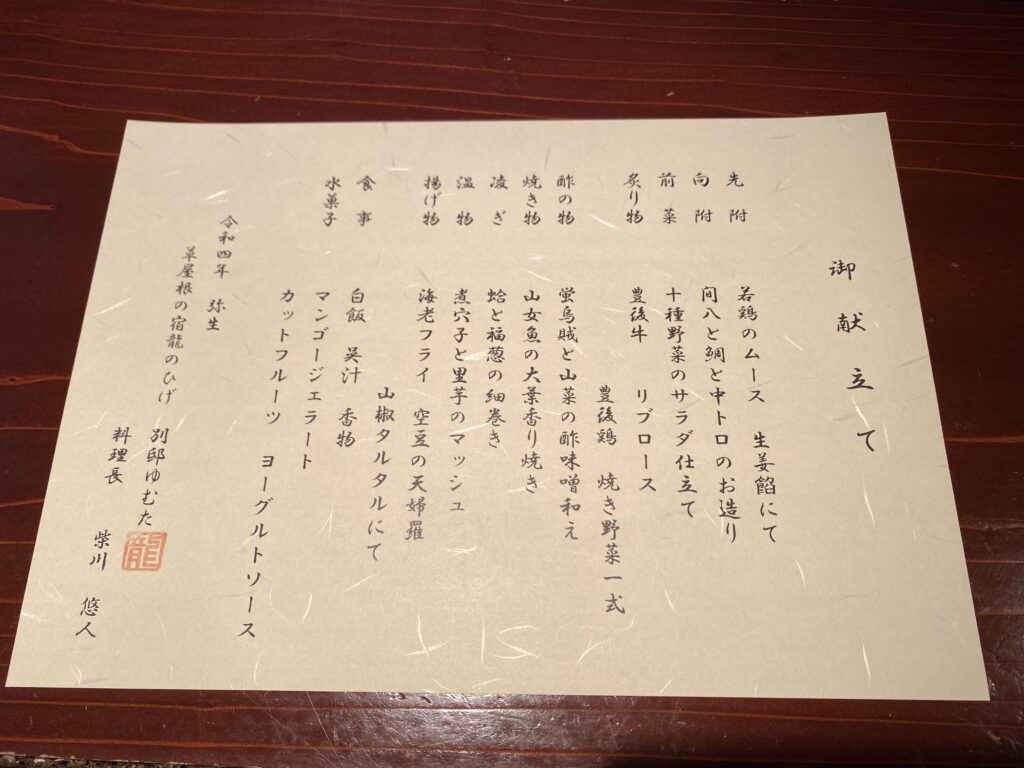 御献立て
先附 若鶏のムース 生姜餡にて
向附 間八と鯛と中トロのお造り
前菜 十種野菜のサラダ仕立て
炙り物 豊後牛 リブロース
豊後鶏 焼き野菜一式
酢の物 蛍烏賊と山菜の酢味噌和え
焼き物 山女魚の大葉香り焼き
凌ぎ 蛤と福葱の細巻き
温物 煮穴子と里芋のマッシュ
揚げ物 海老フライ 空豆の天婦羅
山椒タルタルにて
食事 白飯 呉汁 香物
水菓子 マンゴージェラート
カットフルーツ ヨーグルトソース
令和四年 弥生
草屋根の宿龍のひげ
別邸ゆむた
料理長 柴川 悠人
龍